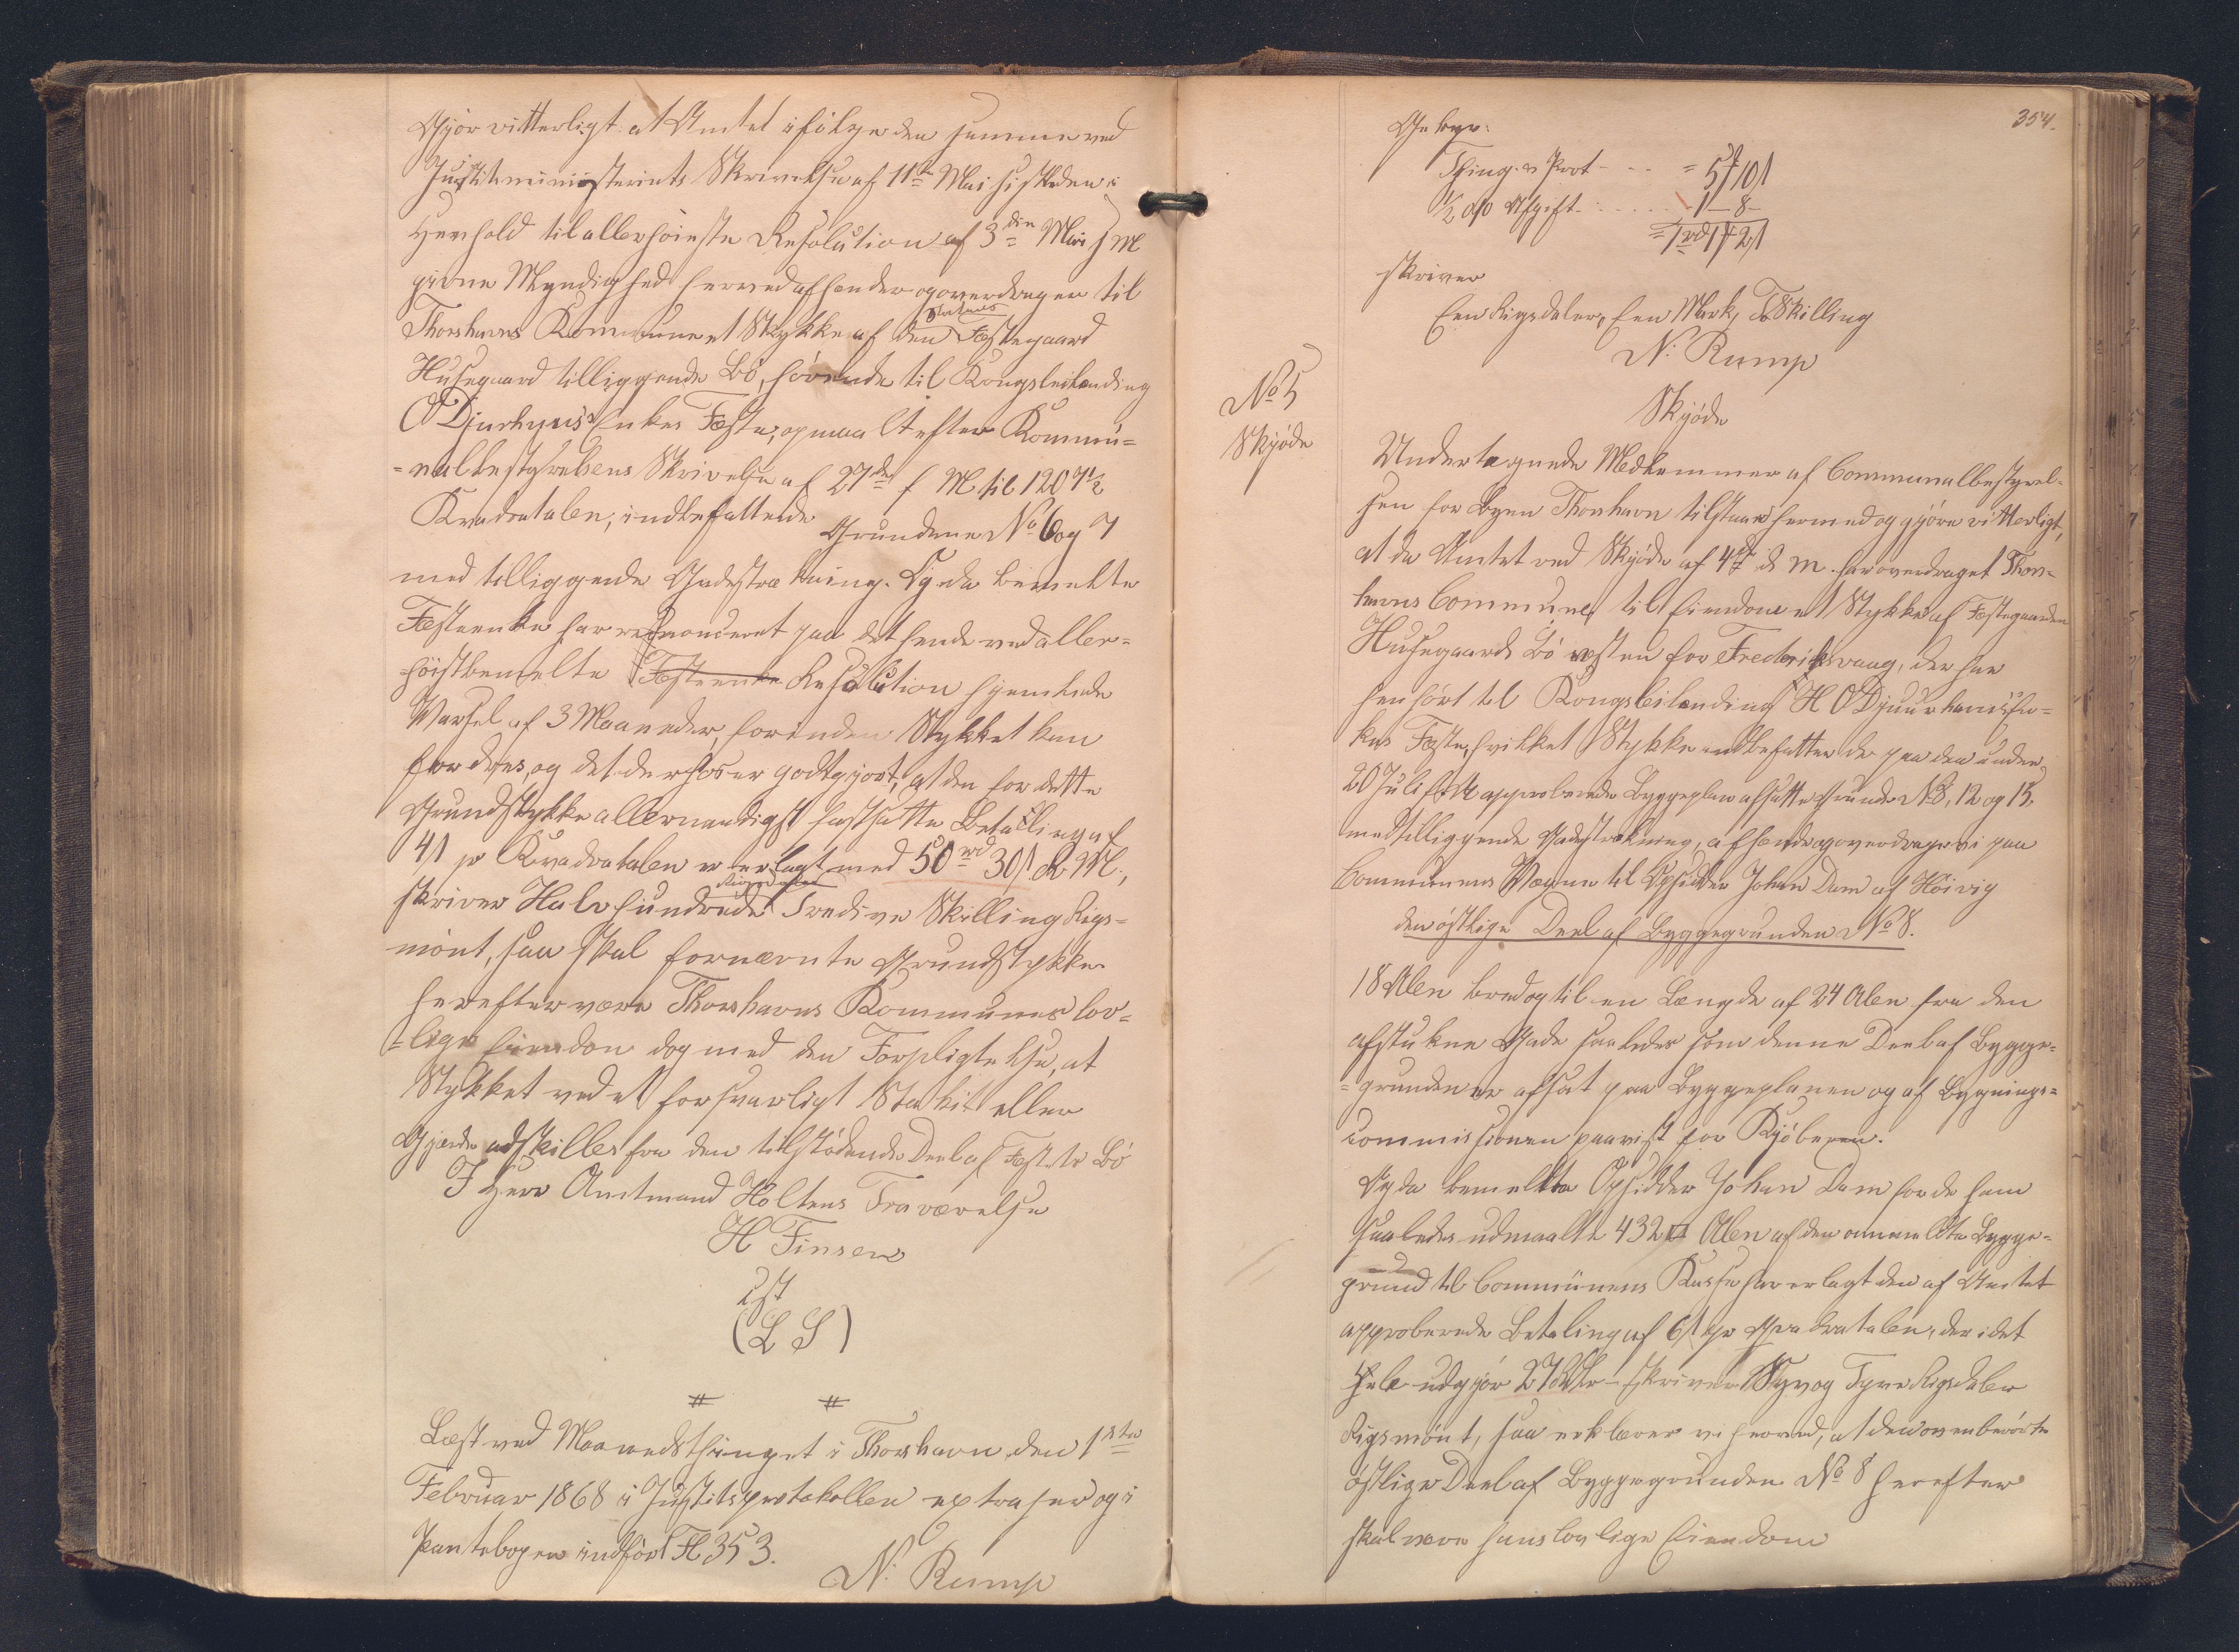 Gjør vitterligt: at Amtet ifølge den samme ved
Justitsministeriets Skrivelse af 11te Mai sidstleden i
Henhold til allerhøieste Resolution af 3die Mai s M
givne Myndighed herved afhænder og overdrager til
Thorshavns Kommune et Stykke af den Statens Fæstegaard
Husegaard tilliggende Bø, hørende til Kongsleilænding
O Djurhuus's Enkes Fæste, opmaalt efter Kommu=
=nalbestyrelsens Skrivelse af 27de f M til 1207½
Kvadratalen, indbefattende Grundene No 6 og 7
med tilliggende Gadestrækning. Og da bemeldte
Fæsteenke har renonceret paa det hende ved aller=
=høistbemeldte Fæsteenke Resolution hjemlede
Varsel af 3 Maaneder, forinden Stykket kan
fordres, og det derhos er godtgjort, at den for dette
Grundstykke allernaadigst fastsatte Betaling af
4 s pr Kvadratalen er erlagt med 50 rd 30 s R M.,
skriver Halvhundrede Rigsdaler Tredive Skilling Rigs=
mønt, saa skal fornævnte Grundstykke
herefter være Thorshavns Kommunes lov=
=lige Eiendom dog med den Forpligtelse, at
Stykket ved et forsvarligt Stakit eller
Gjærde adskilles fra den tilstødende Deel af Fæstets Bø
I Herr Amtmand Holtens Fraværelse
H Finsen
cst
(L S)
# #
Læst ved Maanedsthinget i Thorshavn den 1ste
Februar 1868 i Justitsprotokollen extraheret og i
Pantebogen indført Fol 353.
N. Rump
354.
Gebyr:
Thing. & Prot - - - = 5 ℔ 10 s
½ o/o Afgift - . . . . 1 - 8 -
= 1 rd 1 ℔ 2 s
skriver
Een Rigsdaler, Een Mark, To Skilling
N. Rump
No 5
Skjøde
Skjøde
Undertegnede Medlemmer af Communalbestyrel-
sen for Byen Thorshavn tilstaae hermed og gjøre vitterligt,
at da Amtet ved Skjøde af 4de d M. har overdraget Thors-
havns Commune til Eiendom et Stykke af Fæstegaarden
Husegaards Bø vesten for Frederiksvaag, der har
henhørt til Kongsleilænding H O Djuurhuus's En=
kes Fæste, hvilket Stykke indbefatter de paa den under
20 Juli f. A approberede Byggeplan afsatte Grunde No 8, 12 og 13.
med tilliggende Gadestrækning, afhænde og overdrage vi paa
Communens Vegne til Opsidder Johan Dam af Höivig
den østlige Deel af Byggegrunden No 8.
18 Alen bred og til en Længde af 24 Alen fra den
afstukne Gade saaledes som denne Deel af Bygge=
=grunden er afsat paa Byggeplanen og af Bygnings=
commissionen paavist for Kjøberen.
Og da bemeldte Opsidder Johan Dam for de ham
saaledes udmaalte 432 □ Alen af den ommeldte Bygge=
grund til Communens Kasse har erlagt den af Amtet
approberede Betaling af 6 s pr Qvadratalen, der i det
Hele udgjør 27 Rdlr - skriver Syv og Tyve Rigsdaler
Rigsmønt, saa erklærer vi herved, at den ovenberørte
østlige Deel af Byggegrunden No 8 herefter
skal være hans lovlige Eiendom